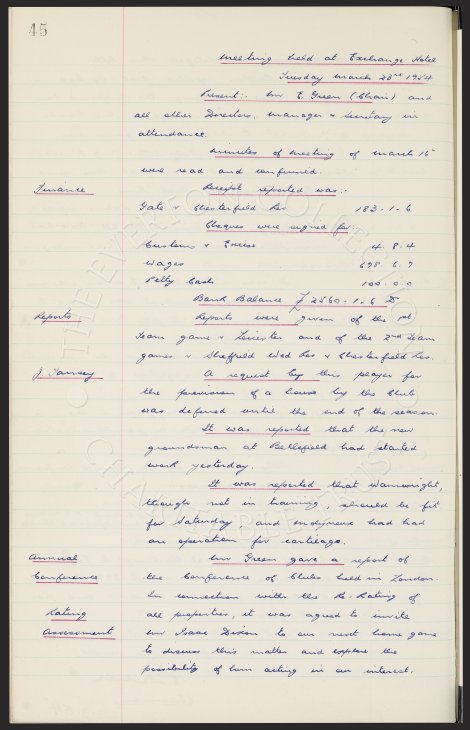 45
Meeting held at Exchange Hotel
Tuesday March 23rd 1954
Present:. Mr E. Green (Chair) and
all other Directors, Manager & Secretary in
attendance.
Minutes of meeting of March 16
were read and confirmed.
Finance
Receipt reported was:-
Gate v Chesterfield Res 183.1.6
Cheques were signed for:
Customs & Excise 4.8.4
Wages 698.6.7
Petty Cash 100.0.0
Bank Balance £2560.1.6 D
Reports
Reports were given of the 1st
Team game v Leicester and of the 2nd Team
games v Sheffield Wed Res & Chesterfield Res.
J. Tansey
A request by this player for
the provision of a house by the Club
was deferred until the end of the season.
It was reported that the new
groundsman at Bellefield had started
work yesterday.
It was reported that Wainwright,
though not in training, should be fit
for Saturday and Molyneux had had
an operation for cartilage.
Annual
Conference
Mr Green gave a report of
the Conference of Clubs held in London.
Rating
Assessment
In connection with the Re-Rating of
all properties, it was agreed to invite
Mr Isaac Dixon to our next home game
to discuss this matter and explore the
possibility of him acting in our interest.
THE EVERTON COLLECTION
CHARITABLE TRUST